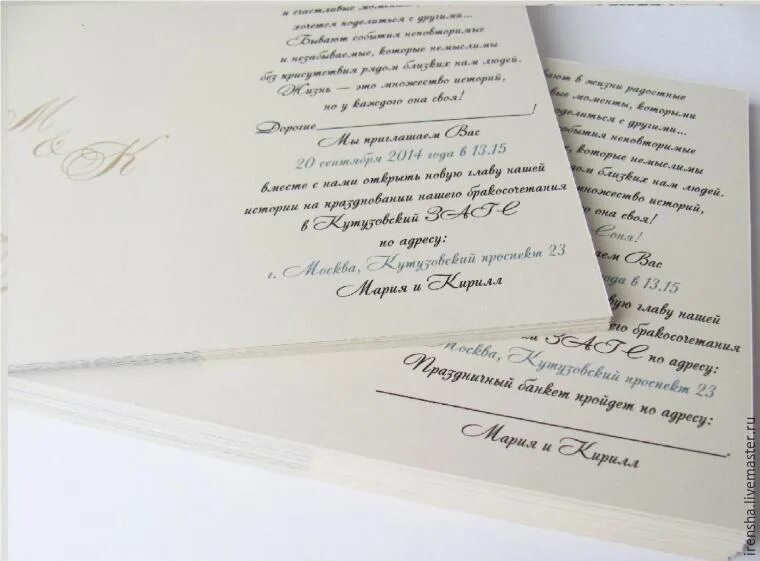 М
&
К
и счастливые моменты, которыми
хочется поделиться с другими...
Бывают события неповторимые
и незабываемые, которые немыслимы
без присутствия рядом близких нам людей.
Жизнь — это множество историй,
но у каждого она своя!
Дорогие!
Мы приглашаем Вас
20 сентября 2014 года в 13.15
вместе с нами открыть новую главу нашей
истории на праздновании нашего бракосочетания
в Кутузовский ЗАГС
по адресу:
г. Москва, Кутузовский проспект 23
Мария и Кирилл
в жизни радостные
моменты, которыми
поделиться с другими...
события неповторимые
которые немыслимы
рядом близких нам людей.
множество историй,
она своя!
Соня!
Вас
года в 13.15
новую главу нашей
бракосочетания
ЗАГС по адресу:
Москва, Кутузовский проспект 23
Праздничный банкет пройдет по адресу:
Мария и Кирилл
irensha.livemaster.ru